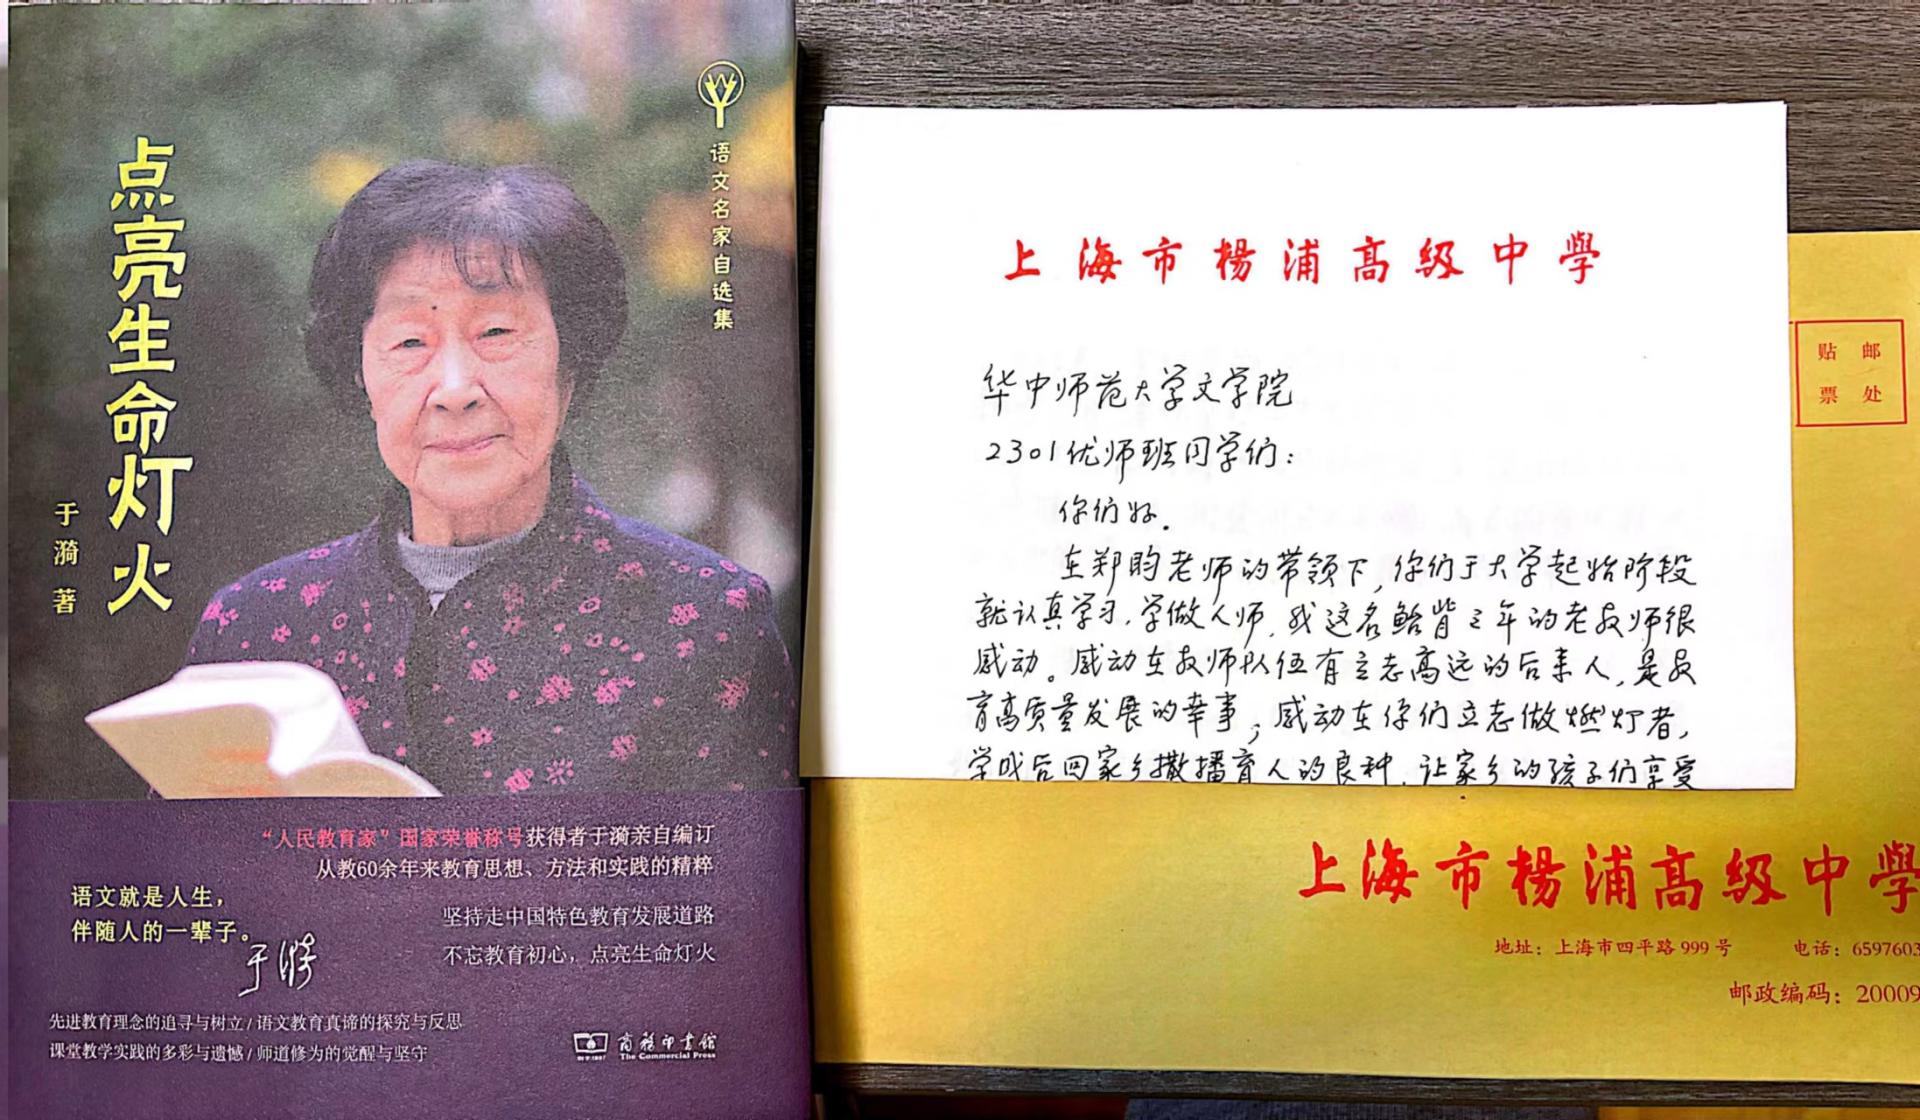 语文名家自选集
点亮生命灯火
于漪 著
“人民教育家”国家荣誉称号获得者于漪亲自编订
从教60余年来教育思想、方法和实践的精粹
语文就是人生，
伴随人的一辈子。
于漪
坚持走中国特色教育发展道路
不忘教育初心，点亮生命灯火
先进教育理念的追寻与树立/语文教育真谛的探究与反思
课堂教学实践的多彩与遗憾/师道修为的觉醒与坚守
商务印书馆
The Commercial Press
上海市楊浦高級中學
华中师范大学文学院
2301优师班同学们：
你们好.
在郑昀老师的带领下,你们于大学起始阶段
就认真学习,学做人师,我这名鲐背之年的老教师很
感动。感动在教师队伍有立志高远的后来人,是教
育高质量发展的幸事;感动在你们立志做燃灯者,
学成后回家乡撒播育人的良种,让家乡的孩子们享受
贴邮
票处
上海市楊浦高級中學
地址：上海市四平路999号 电话：6597603
邮政编码：20009